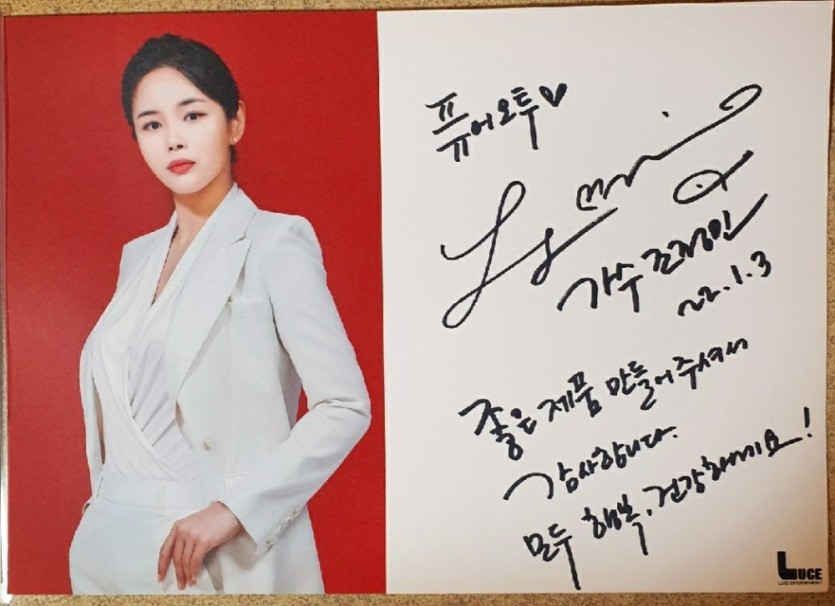 퓨어오투♡
가수 조정민
22.1.3
좋은 제품 만들어주셔서
감사합니다.
모두 행복, 건강하세요!
LUCE
LUCE ENTERTAINMENT